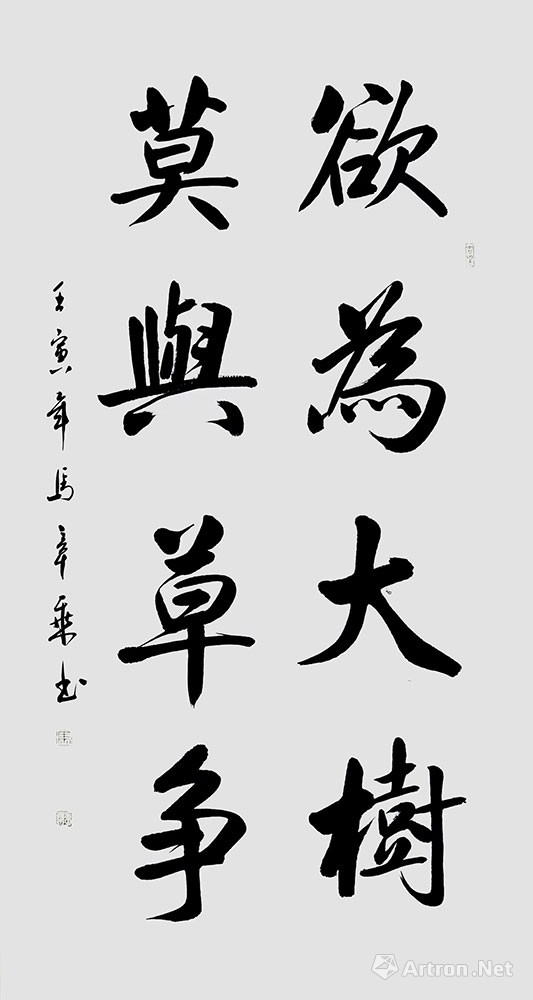 欲為大樹
莫與草争
壬寅年馬章乘书
Artron.Net